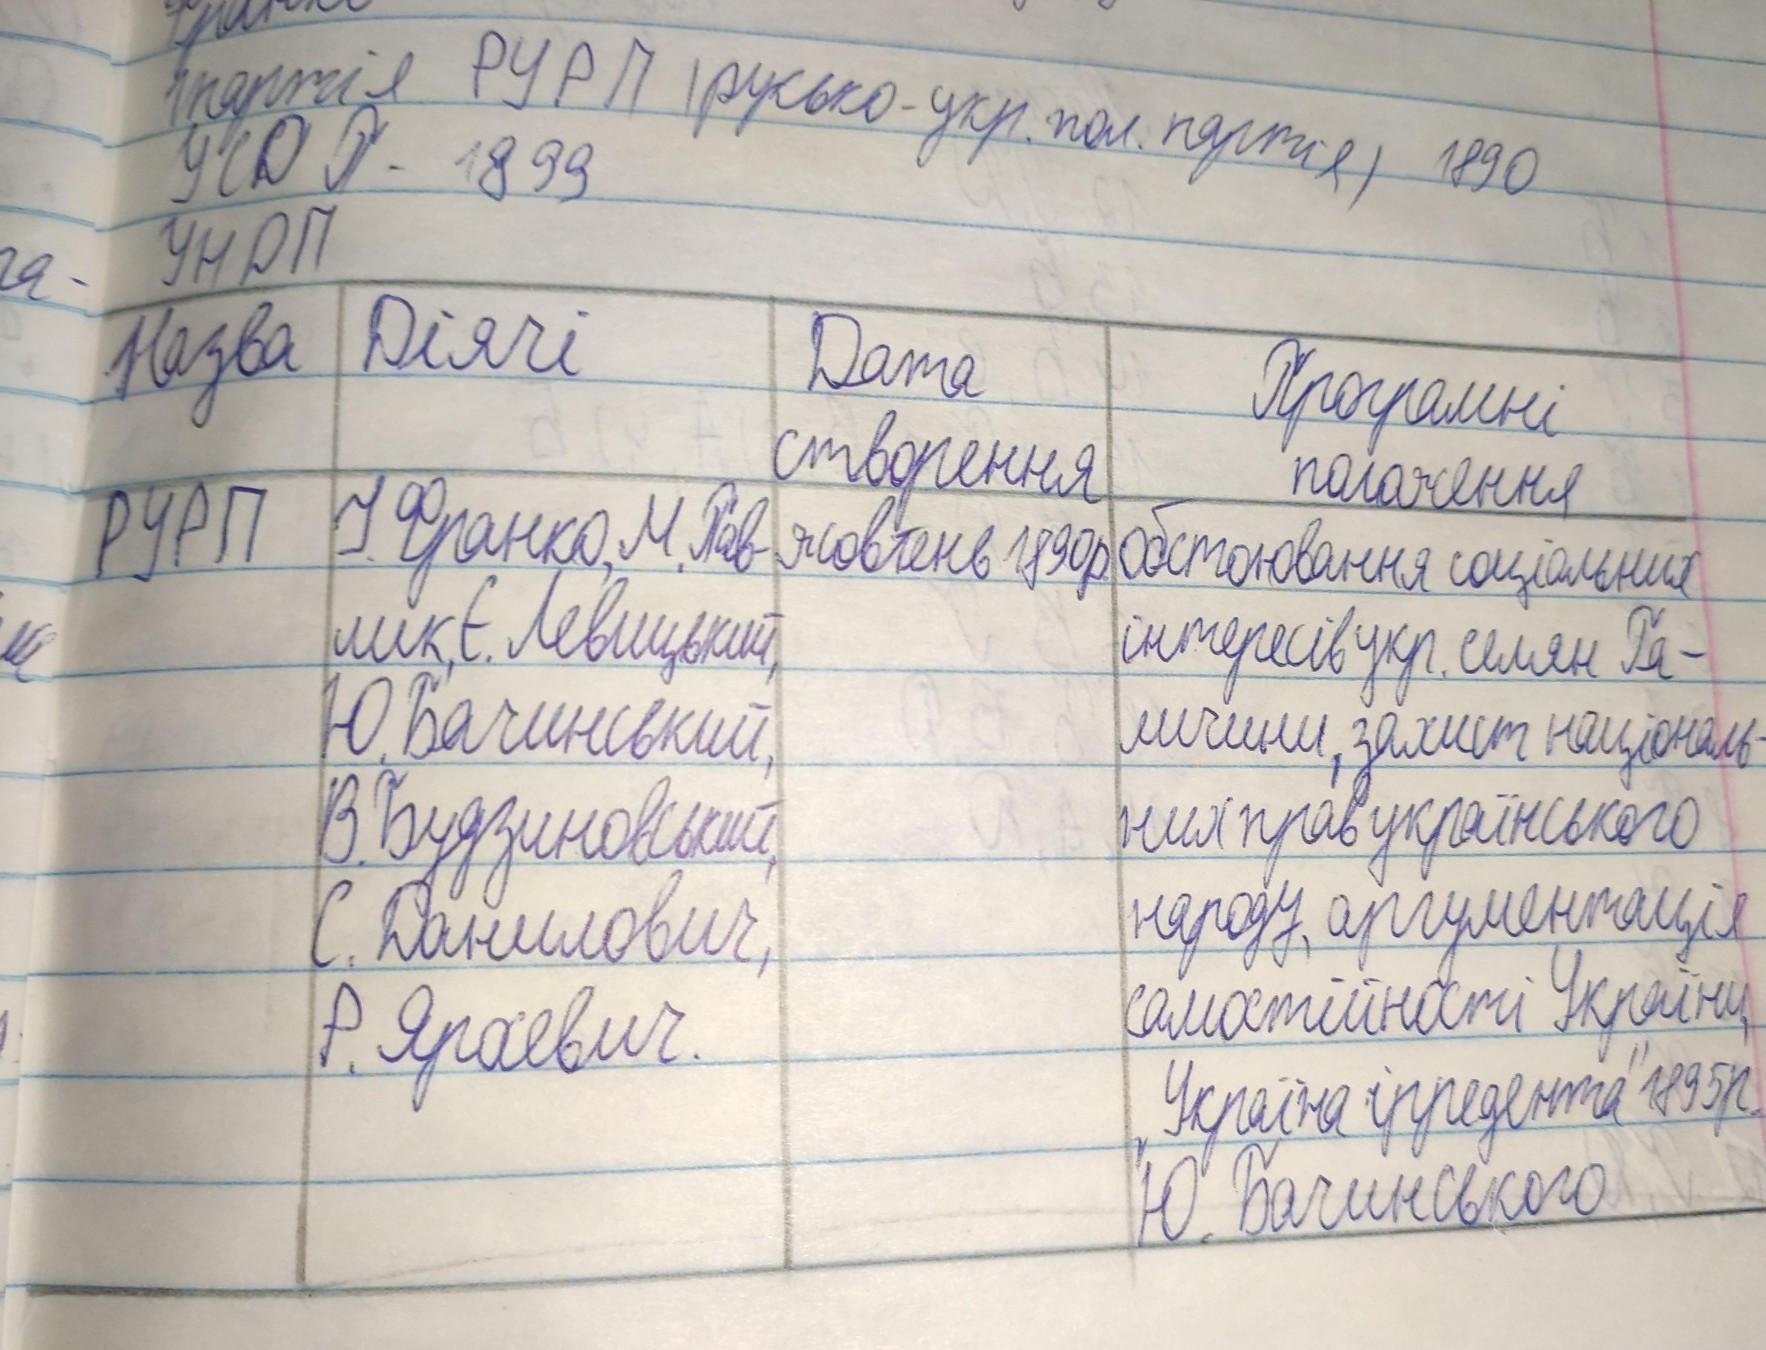 Франко
1 партія РУРП (русько-укр. пол. партія) 1890
УСДП - 1899
УНДП
Назва Діячі Дата створення Програмні положення
РУРП І. Франко, М. Пав- жовтень 1890р. обстоювання соціальних
лик, Є. Левицький, інтересів укр. селян Га-
Ю. Бачинський, личини, захист національ-
В. Будзиновський, них прав українського
С. Данилович, народу, аргументація
Р. Яросевич. самостійності України,
"Україна ірредента" 1895р.
Ю. Бачинського